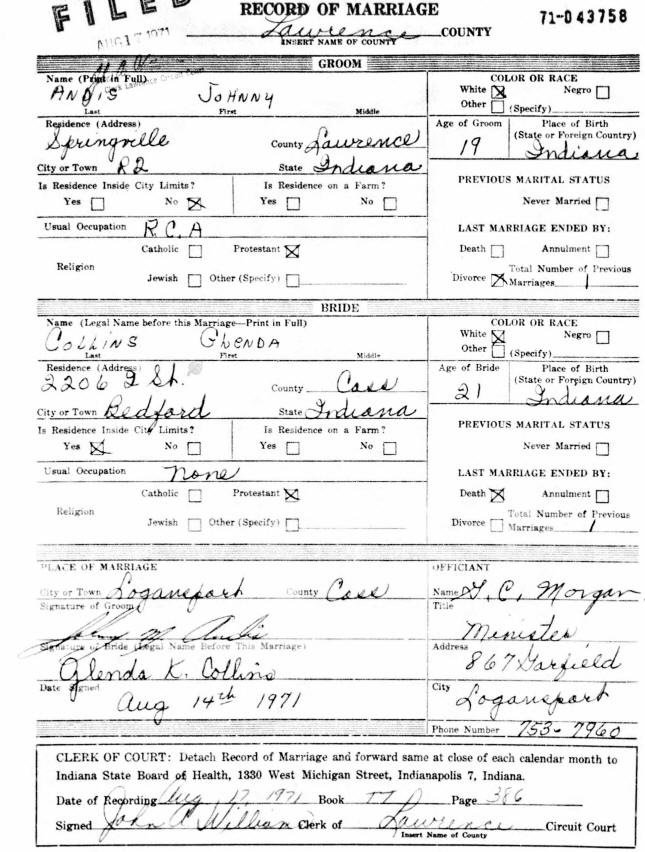 FILED
AUG 17 1971
RECORD OF MARRIAGE
71-043758
Lawrence COUNTY
INSERT NAME OF COUNTY
GROOM
Name (Print in Full)
ANDIS JOHNNY
Last First Middle
COLOR OR RACE
White ☒ Negro ☐
Other ☐ (Specify)
Residence (Address)
Springville County Lawrence
City or Town R2 State Indiana
Age of Groom 19
Place of Birth
(State or Foreign Country)
Indiana
Is Residence Inside City Limits? Is Residence on a Farm?
Yes ☐ No ☒ Yes ☐ No ☐
PREVIOUS MARITAL STATUS
Never Married ☐
Usual Occupation R.C.A
LAST MARRIAGE ENDED BY:
Catholic ☐ Protestant ☒
Religion
Jewish ☐ Other (Specify) ☐
Death ☐ Annulment ☐
Total Number of Previous
Divorce ☒ Marriages 1
BRIDE
Name (Legal Name before this Marriage—Print in Full)
COLLINS GLENDA
Last First Middle
COLOR OR RACE
White ☒ Negro ☐
Other ☐ (Specify)
Residence (Address)
2206 I St. County Cass
City or Town Bedford State Indiana
Age of Bride 21
Place of Birth
(State or Foreign Country)
Indiana
Is Residence Inside City Limits? Is Residence on a Farm?
Yes ☒ No ☐ Yes ☐ No ☐
PREVIOUS MARITAL STATUS
Never Married ☐
Usual Occupation None
LAST MARRIAGE ENDED BY:
Catholic ☐ Protestant ☒
Religion
Jewish ☐ Other (Specify) ☐
Death ☒ Annulment ☐
Total Number of Previous
Divorce ☐ Marriages 1
PLACE OF MARRIAGE
City or Town Logansport County Cass
Signature of Groom
Johny M Andis
Signature of Bride (Legal Name Before This Marriage)
Glenda K. Collins
Date Signed
Aug 14th 1971
OFFICIANT
Name G. C. Morgan
Title
Minister
Address
867 Garfield
City
Logansport
Phone Number 753-7960
CLERK OF COURT: Detach Record of Marriage and forward same at close of each calendar month to
Indiana State Board of Health, 1330 West Michigan Street, Indianapolis 7, Indiana.
Date of Recording Aug 17 1971 Book Page 386
Signed John Williams Clerk of Lawrence Circuit Court
Insert Name of County